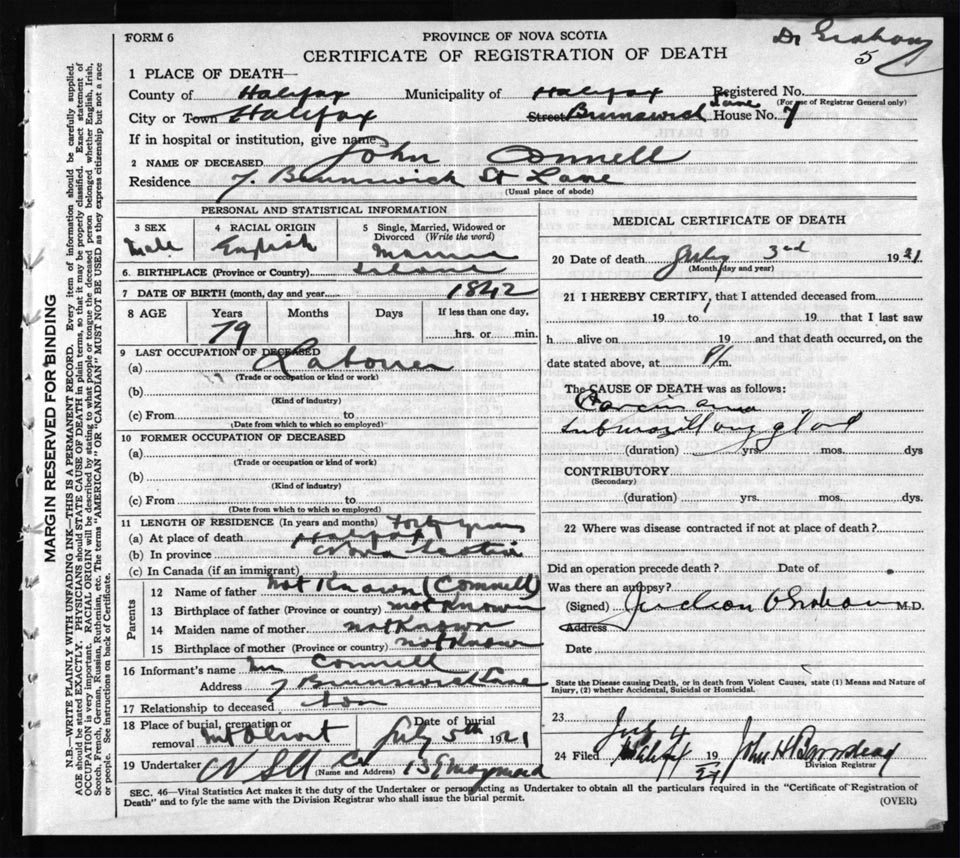 FORM 6
PROVINCE OF NOVA SCOTIA
Dr Graham
CERTIFICATE OF REGISTRATION OF DEATH
5
1 PLACE OF DEATH—
County of Halifax Municipality of Halifax Registered No.
(For use of Registrar General only)
City or Town Halifax Street Brunswick Lane House No. 7
If in hospital or institution, give name
2 NAME OF DECEASED John Connell
Residence 7. Brunswick St Lane
(Usual place of abode)
PERSONAL AND STATISTICAL INFORMATION
3 SEX Male
4 RACIAL ORIGIN English
5 Single, Married, Widowed or Divorced (Write the word)
6. BIRTHPLACE (Province or Country)
7 DATE OF BIRTH (month, day and year 1842
8 AGE Years 79 Months Days If less than one day, hrs. or min.
9 LAST OCCUPATION OF DECEASED
(a) Labourer
(Trade or occupation or kind or work)
(b)
(Kind of industry)
(c) From to
(Date from which to which so employed)
10 FORMER OCCUPATION OF DECEASED
(a)
(Trade or occupation or kind of work)
(b)
(Kind of industry)
(c) From to
(Date from which to which so employed)
11 LENGTH OF RESIDENCE (In years and months) Forty years
(a) At place of death Halifax
(b) In province Nova Scotia
(c) In Canada (if an immigrant)
Parents
12 Name of father not Known (Connell)
13 Birthplace of father (Province or country) not known
14 Maiden name of mother not Known
15 Birthplace of mother (Province or country) not know
16 Informant's name Connell
Address 7 Brunswick Lane
17 Relationship to deceased son
18 Place of burial, cremation or removal Mt Olivet Date of burial July 5th 1921
19 Undertaker N S U Co
(Name and Address)
MEDICAL CERTIFICATE OF DEATH
20 Date of death July 3rd 1921
(Month, day and year)
21 I HEREBY CERTIFY, that I attended deceased from
19 to 19 that I last saw
h alive on 19 and that death occurred, on the
date stated above, at P/m.
The CAUSE OF DEATH was as follows:
Carcinoma
Submaxillary gland
(duration) yrs. mos. dys
CONTRIBUTORY
(Secondary)
(duration) yrs. mos. dys.
22 Where was disease contracted if not at place of death?
Did an operation precede death? Date of
Was there an autopsy?
(Signed) Judson Graham M.D.
Address
Date
State the Disease causing Death, or in death from Violent Causes, state (1) Means and Nature of
Injury, (2) whether Accidental, Suicidal or Homicidal.
23
July 4
24 Filed Halifax 19 21
Division Registrar
SEC. 46—Vital Statistics Act makes it the duty of the Undertaker or person acting as Undertaker to obtain all the particulars required in the "Certificate of Registration of
Death" and to fyle the same with the Division Registrar who shall issue the burial permit.
(OVER)
MARGIN RESERVED FOR BINDING
N.B.—WRITE PLAINLY WITH UNFADING INK—THIS IS A PERMANENT RECORD. Every item of information should be carefully supplied.
AGE should be stated EXACTLY. PHYSICIANS should STATE CAUSE OF DEATH in plain terms, so that it may be properly classified. Exact statement of
OCCUPATION is very important. RACIAL ORIGIN will be described by stating to what people or tongue the deceased person belonged whether English, Irish,
Scotch, French, German, Russian, Ruthenian, etc. The terms "AMERICAN" OR "CANADIAN" MUST NOT BE USED as they express citizenship but not a race
or people. See instructions on back of Certificate.